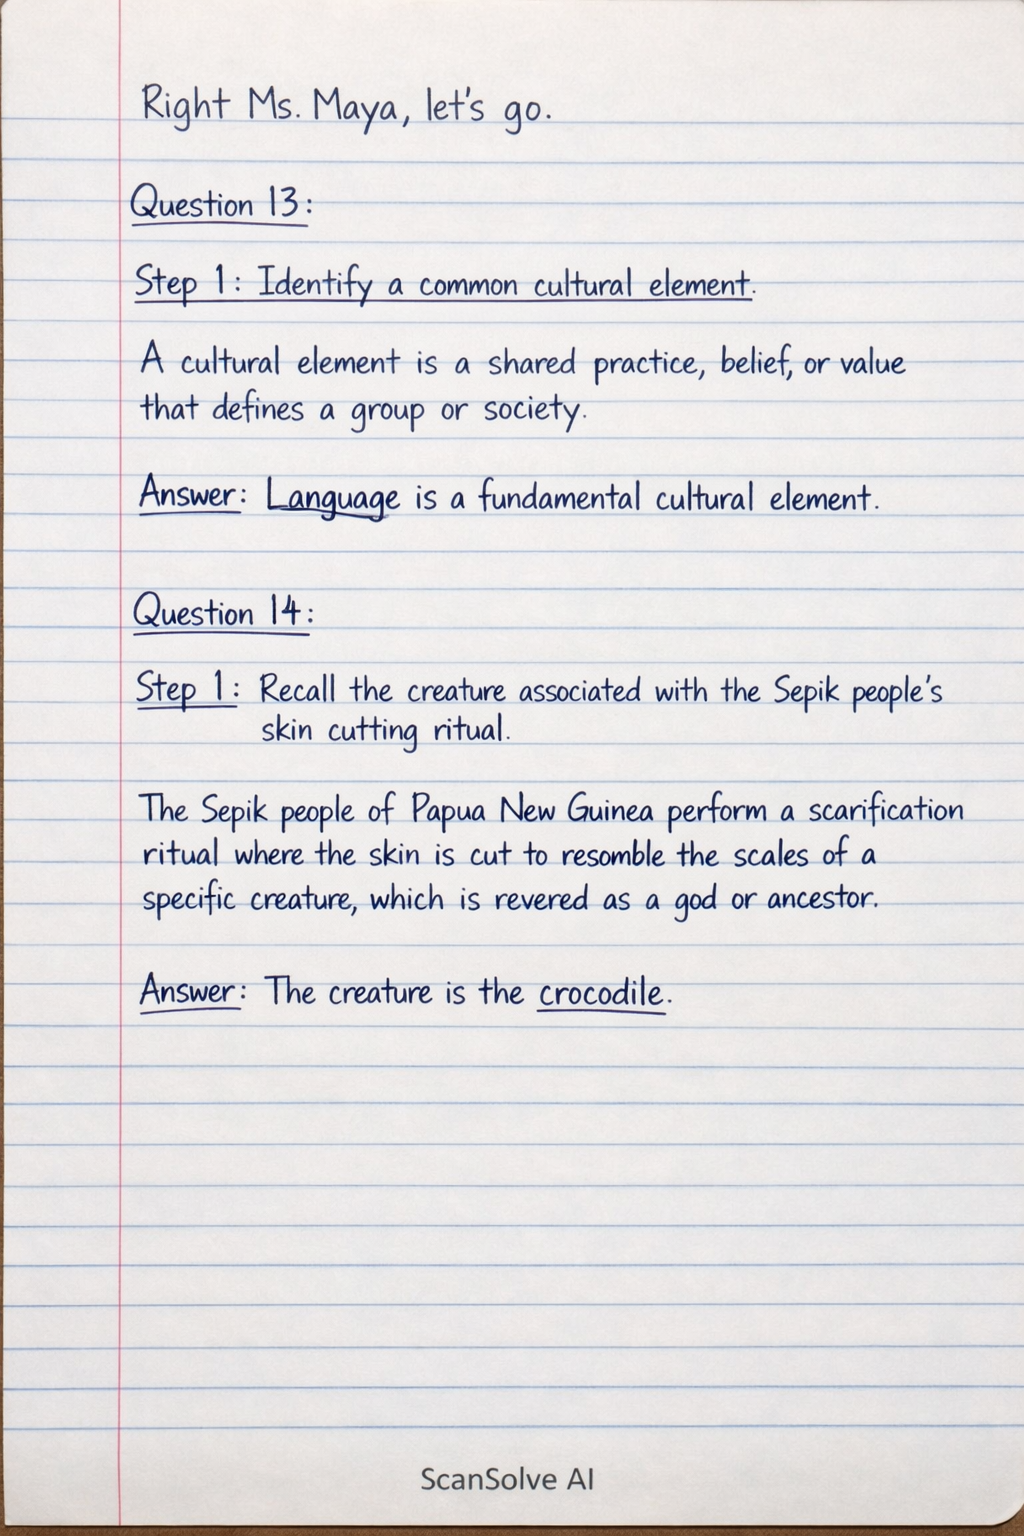 Right Ms. Maya, let's go.
Question 13:
Step 1: Identify a common cultural element.
A cultural element is a shared practice, belief, or value
that defines a group or society.
Answer: Language is a fundamental cultural element.
Question 14:
Step 1: Recall the creature associated with the Sepik people's
skin cutting ritual.
The Sepik people of Papua New Guinea perform a scarification
ritual where the skin is cut to resomble the scales of a
specific creature, which is revered as a god or ancestor.
Answer: The creature is the crocodile.
ScanSolve AI